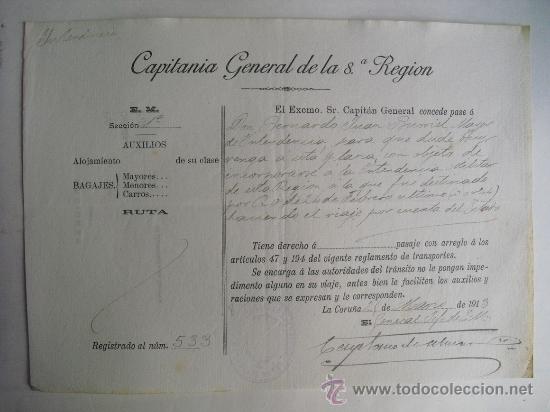 Intendencia
Capitania General de la 8.ª Region
E. M.
Sección 1ª
AUXILIOS
Alojamiento de su clase
BAGAJES.
Mayores...
Menores...
Carros....
RUTA
Registrado al núm. 533
El Excmo. Sr. Capitán General concede pase á
Don Bernardo Juan Mayor
de Intendencia para que desde
venga a esta plaza, con objeto de
incorporarse a la Intendencia militar
de esta Region a la que fue destinado
por R.O. de 26 de Febrero ultimo
haciendo el viaje por cuenta del Estado
Tiene derecho á pasaje con arreglo á los
artículos 47 y 194 del vigente reglamento de transportes.
Se encarga á las autoridades del tránsito no le pongan impe-
dimento alguno en su viaje, antes bien le faciliten los auxilios y
raciones que se expresan y le corresponden.
La Coruña de Marzo de 1913
El General Jefe de E.M.
Cayetano de
todocoleccion
www.todocoleccion.net